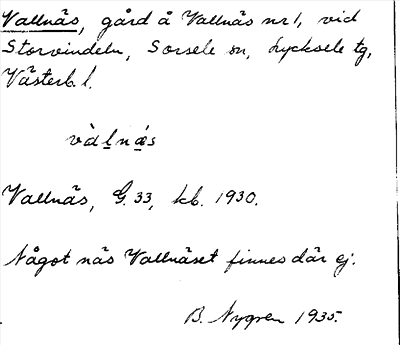 Vallnäs, gård å Vallnäs nr 1, vid
Storvindeln, Sorsele sn, Lycksele tg,
Västerb. l.
vàlnǽs
Vallnäs, G. 33, kb. 1930.
Något näs Vallnäset finnes där ej.
B. Nygren 1935.